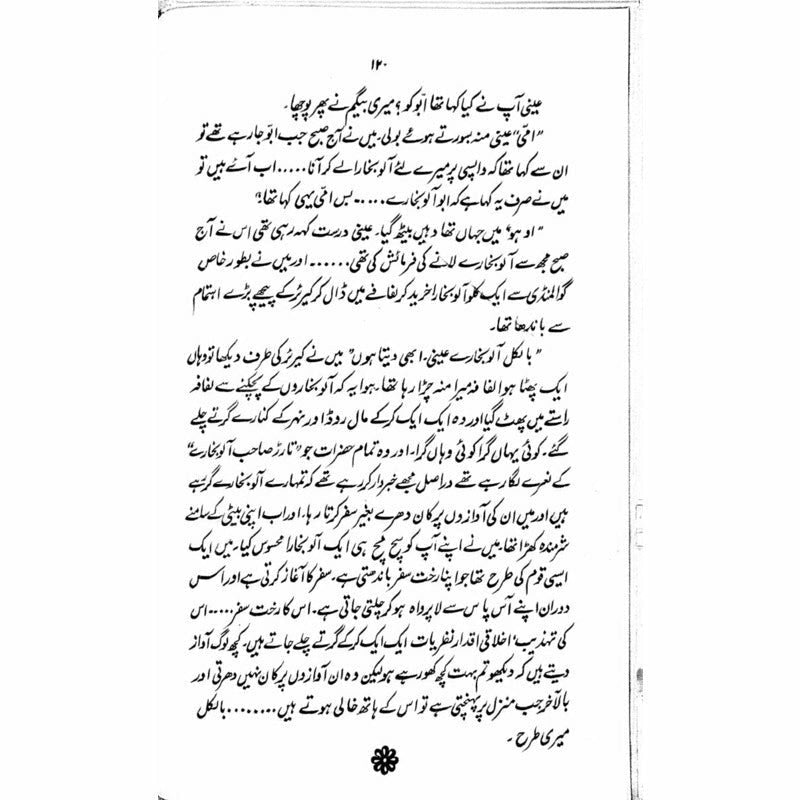 ۱۲۰
عینی آپ نے کیا کہا تھا ابّو کو ؟ میری بیگم نے پھر پوچھا۔
”امّی“ عینی منہ بسورتے ہوئے بولی۔ میں نے آج صبح جب ابّو جا رہے تھے تو
ان سے کہا تھا کہ واپسی پر میرے لئے آلو بخارا لے کر آنا ..... اب آئے ہیں تو
میں نے صرف یہ کہا ہے کہ ابو آلو بخارے ..... بس امّی یہی کہا تھا!“
”او ہو“ میں جہاں تھا وہیں بیٹھ گیا۔ عینی درست کہہ رہی تھی اس نے آج
صبح مجھ سے آلو بخارے لانے کی فرمائش کی تھی ...... اور میں نے بطور خاص
گوالمنڈی سے ایک کلو آلو بخارا خرید کر لفافے میں ڈال کر کیرئر کے پیچھے بڑے اہتمام
سے باندھا تھا۔
”بالکل آلو بخارے عینی۔ ابھی دیتا ہوں“ میں نے کیرئر کی طرف دیکھا تو وہاں
ایک پھٹا ہوا لفافہ میرا منہ چڑا رہا تھا۔ ہوا یہ کہ آلو بخاروں کے پچکنے سے لفافہ
راستے میں پھٹ گیا اور وہ ایک ایک کر کے مال روڈ اور نہر کے کنارے گرتے چلے
گئے۔ کوئی یہاں گرا کوئی وہاں گرا۔ اور وہ تمام حضرات جو ”تارڑ صاحب آلو بخارے“
کے نعرے لگا رہے تھے دراصل مجھے خبردار کر رہے تھے کہ تمہارے آلو بخارے گر رہے
ہیں اور میں ان کی آوازوں پر کان دھرے بغیر سفر کرتا رہا۔ اور اب اپنی بیٹی کے سامنے
شرمندہ کھڑا تھا۔ میں نے اپنے آپ کو سچ مچ ہی ایک آلو بخارا محسوس کیا۔ میں ایک
ایسی قوم کی طرح تھا جو اپنا رخت سفر باندھتی ہے۔ سفر کا آغاز کرتی ہے اور اس
دوران اپنے آس پاس سے لاپرواہ ہو کر چلتی جاتی ہے۔ اس کا رخت سفر ..... اس
کی تہذیب، اخلاقی اقدار نظریات ایک ایک کر کے گرتے چلے جاتے ہیں۔ کچھ لوگ آواز
دیتے ہیں کہ دیکھو تم بہت کچھ کھو رہے ہو لیکن وہ ان آوازوں پر کان نہیں دھرتی اور
بالآخر جب منزل پر پہنچتی ہے تو اس کے ہاتھ خالی ہوتے ہیں ........ بالکل
میری طرح ۔